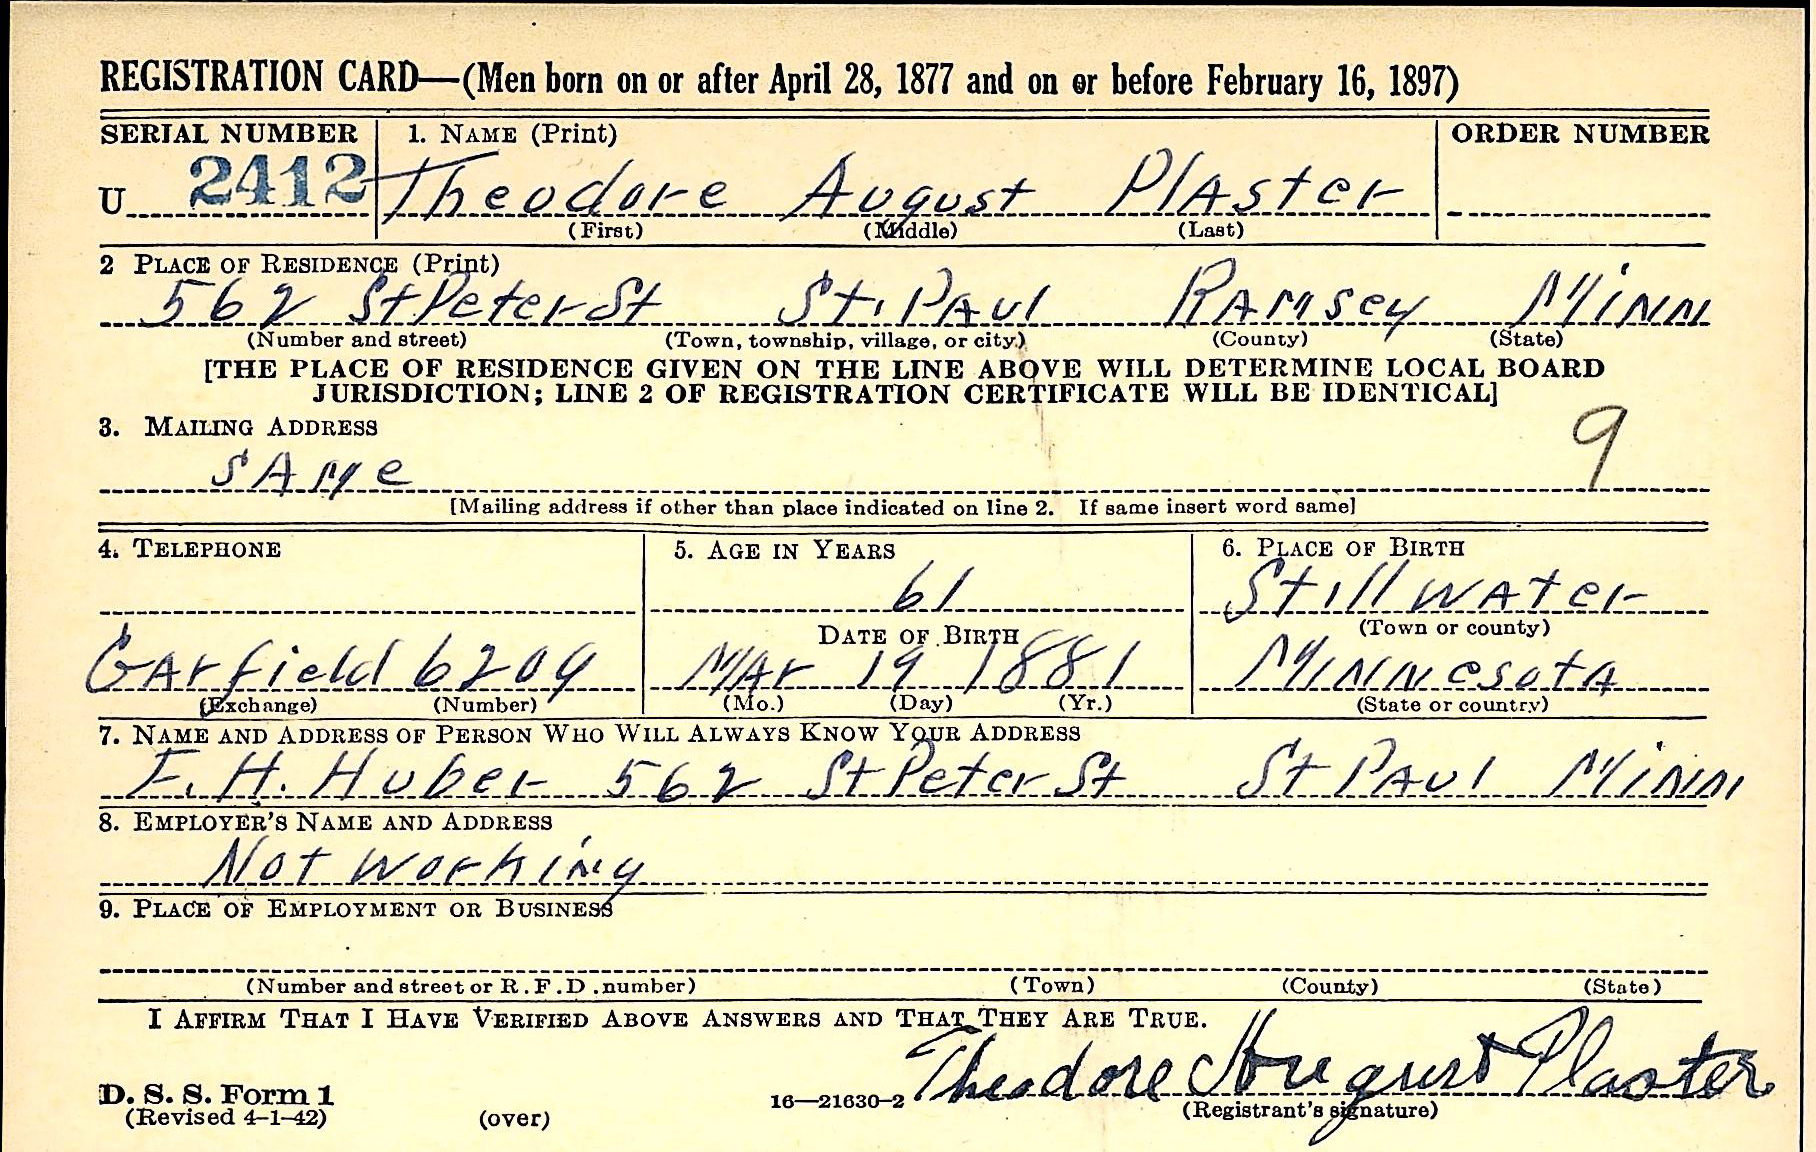 REGISTRATION CARD—(Men born on or after April 28, 1877 and on or before February 16, 1897)
SERIAL NUMBER 1. NAME (Print) ORDER NUMBER
U 2412 Theodore August Plaster
(First) (Middle) (Last)
2 PLACE OF RESIDENCE (Print)
562 St Peter St St. Paul Ramsey Minn
(Number and street) (Town, township, village, or city) (County) (State)
[THE PLACE OF RESIDENCE GIVEN ON THE LINE ABOVE WILL DETERMINE LOCAL BOARD
JURISDICTION; LINE 2 OF REGISTRATION CERTIFICATE WILL BE IDENTICAL]
3. MAILING ADDRESS
9
Same
[Mailing address if other than place indicated on line 2. If same insert word same]
4. TELEPHONE 5. AGE IN YEARS 6. PLACE OF BIRTH
61 Stillwater
DATE OF BIRTH (Town or county)
Garfield 6209 Mar 19 1881 Minnesota
(Exchange) (Number) (Mo.) (Day) (Yr.) (State or country)
7. NAME AND ADDRESS OF PERSON WHO WILL ALWAYS KNOW YOUR ADDRESS
F. H. Huber 562 St Peter St St Paul Minn
8. EMPLOYER'S NAME AND ADDRESS
Not working
9. PLACE OF EMPLOYMENT OR BUSINESS
(Number and street or R.F.D. number) (Town) (County) (State)
I AFFIRM THAT I HAVE VERIFIED ABOVE ANSWERS AND THAT THEY ARE TRUE.
Theodore August Plaster
D. S. S. Form 1
(Revised 4-1-42) (over) 16—21630-2 (Registrant's signature)